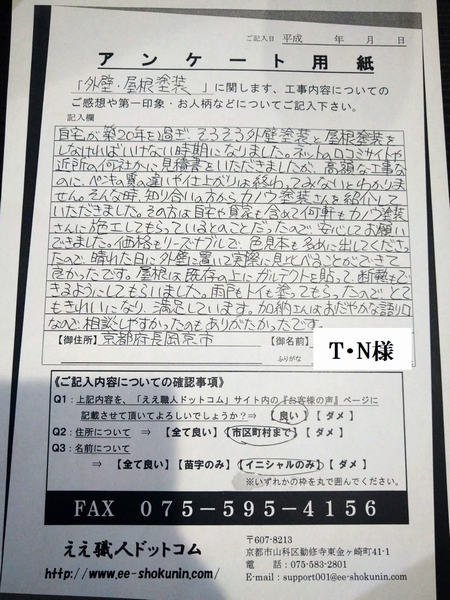 ご記入日 平成 年 月 日
アンケート用紙
「外壁・屋根塗装」に関します、工事内容についての
ご感想や第一印象・お人柄などについてご記入下さい。
記入欄
自宅が築20年を過ぎ、そろそろ外壁塗装と屋根塗装を
しなければいけない時期になりました。ネットの口コミサイトや
近所の何社かに見積書をいただきましたが、高額な工事な
のに、ペンキの質の違いや仕上がりは終わってみないとわかりま
せん。そんな時、知り合いの方からカノウ塗装さんを紹介して
いただきました。その方は自宅や貸家も含めて何軒もカノウ塗装
さんに施工してもらっているとのことだったので安心してお願い
できました。価格もリーズナブルで、色見本も多めに出してくださっ
たので、晴れた日に外壁に置いて実際に見比べることができて
良かったです。屋根は既存の上にガルテクトを貼って、断熱もで
きるようにしてもらいました。雨戸もトイも塗ってもらったので とて
もきれいになり、満足しています。加納さんはおだやかな語り口
なので、相談しやすかったのもありがたかったです。
【御住所】京都府長岡京市 【御名前】 T・N様
ふりがな
《ご記入内容についての確認事項》
Q1：上記内容を、「ええ職人ドットコム」サイト内の『お客様の声』ページに
記載させて頂いてよろしいでしょうか？⇒ 【 良い 】 【 ダメ 】
Q2：住所について ⇒ 【全て良い】 【市区町村まで】 【 ダメ 】
Q3：名前について
⇒ 【全て良い】 【苗字のみ】 【イニシャルのみ】 【 ダメ 】
※いずれかの枠を丸で囲んでください。
FAX 075-595-4156
ええ職人ドットコム
http://www.ee-shokunin.com/
〒607-8213
京都市山科区勧修寺東金ヶ崎町41-1
電 話：075-583-2801
E-mail：support001@ee-shokunin.com